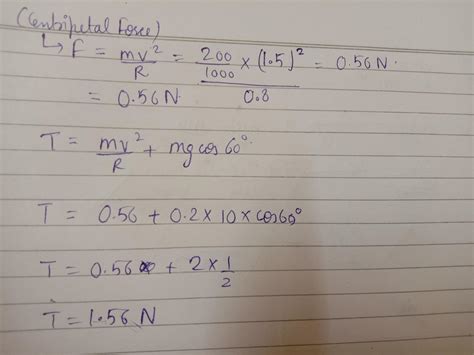 (Centripetal Force)
↳ F = mv²/R = 200/1000 × (1.5)² / 0.8 = 0.56 N.
= 0.56 N
T = mv²/R + mg cos 60°
T = 0.56 + 0.2 × 10 × cos 60°
T = 0.56 + 2 × 1/2
T = 1.56 N